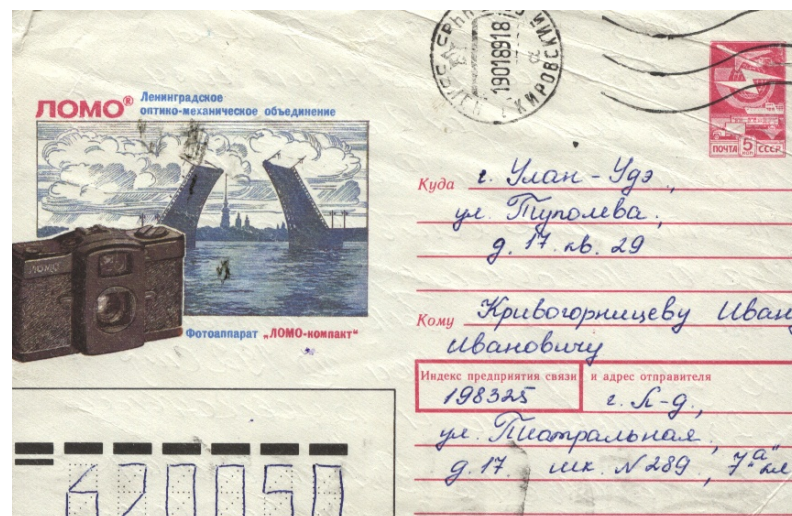 ЛОМО®
Ленинградское
оптико-механическое объединение
ЛОМО
Фотоаппарат „ЛОМО-компакт“
19018918
КИРОВСКИЙ
ПОЧТА 5 КОП СССР
Куда г. Улан-Удэ,
ул. Туполева,
д. 17. кв. 29
Кому Кривогорницеву Иван
Ивановичу
Индекс предприятия связи и адрес отправителя
198325 г. Л-д,
ул. Театральная,
д. 17. шк. №289, 7"а" кл
670050